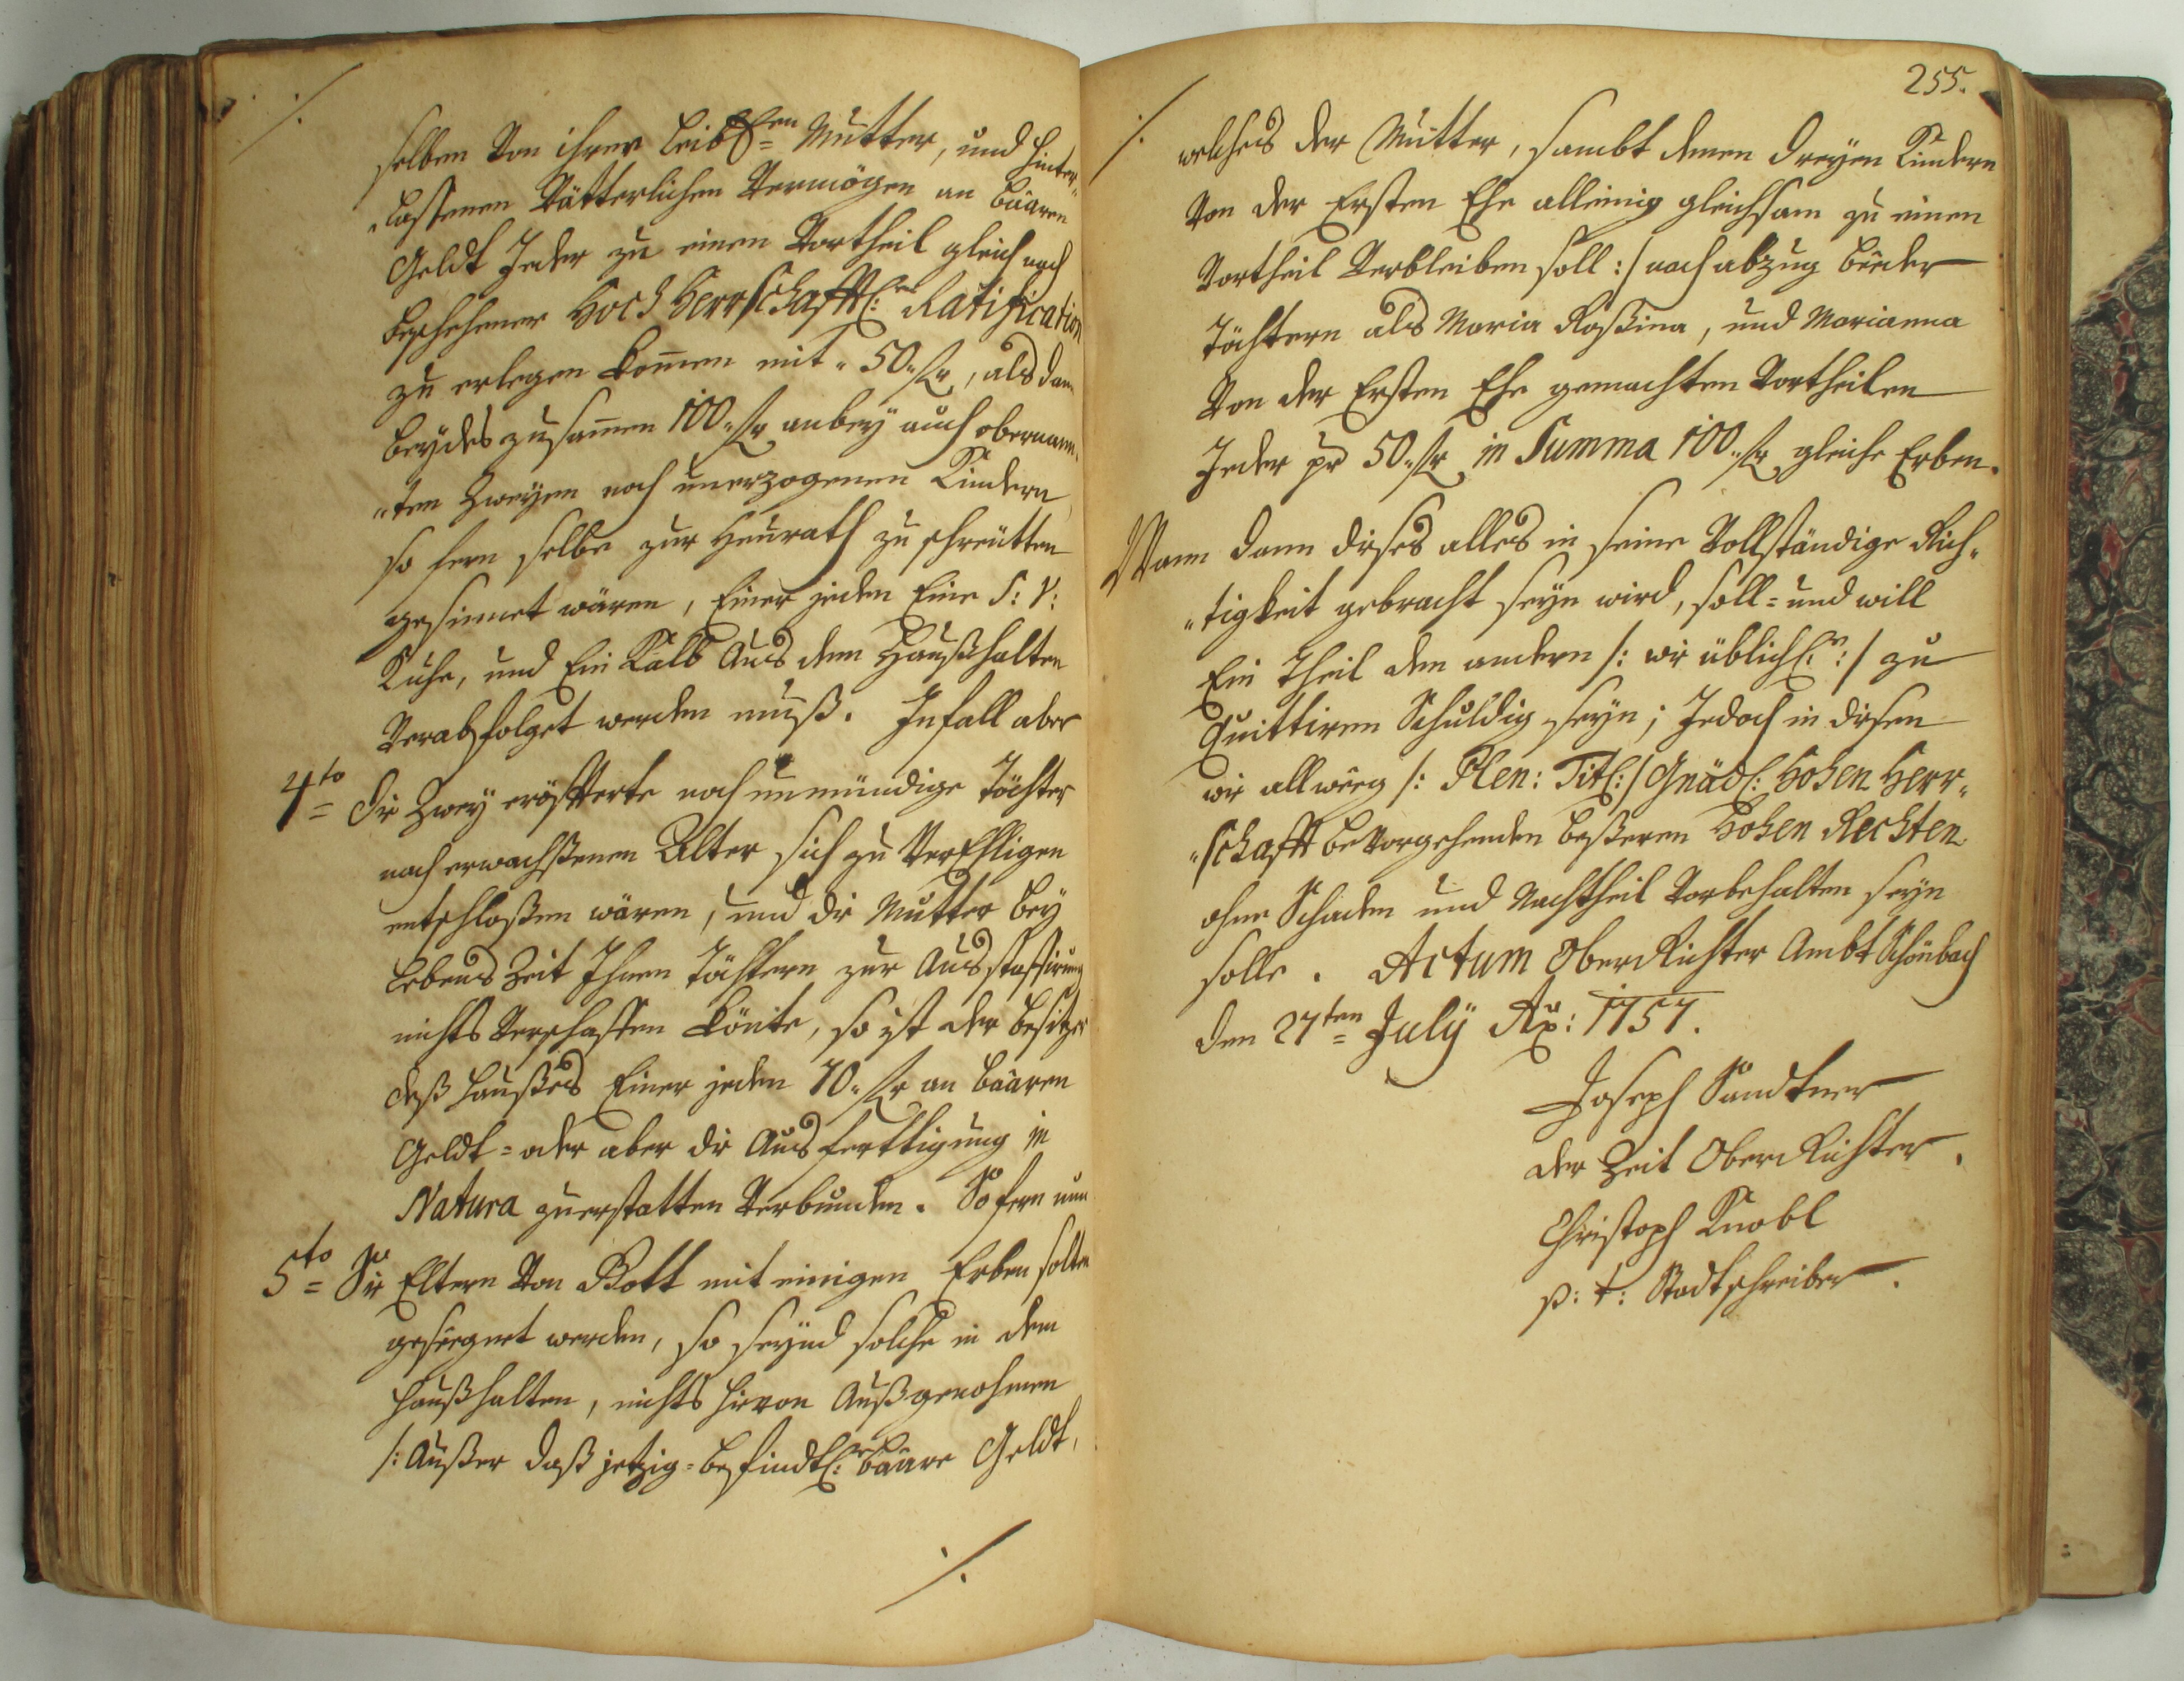 ./.
selben Von ihrer leibl:en Mutter, und hinter„
„lassenen Vätterlichen Vermögen an baaren
Geldt Jeder zu einen Vortheil gleich nach
beschehener Hoch Herrschafftl:er Ratification
zu erlegen komen mit „50„ fr, als dann
beydes zusamen 100„ fr anbey auch obernann„
„ten Zweyen noch unerzogenen Kindern
so fern selbe zur Heurath zu schreitten
gesinnet wären, Einer jeden Eine S: V:
Kuhe, und Ein Kalb Aus dem Haußhalten
Verabfolget werden muß. Infall aber
4to die Zwey eröffterte noch unmündige Töchter
nach erwachßenen Alter sich zu Verehligen
entschloßen wären, und die Mutter bey
lebens Zeit Ihren Töchtern zur Ausstaffirung
nichts Verschaffen könte, so ist der besitzer
deß haußes Einer jeden 70„ fr an baaren
Geldt = oder aber die Ausferttigung in
Natura zuerstatten Verbunden. So fern nun
5to Die Eltern Von Gott mit einigen Erben solten
geseegnet werden, so seynd solche in dem
haußhalten, nichts hievon Außgenohmen
/: Außer daß jetzig=befindtl: baare Geldt,
./.
255.
./.
welches der Mutter, sambt denen dreyen Kindern
Von der Ersten Ehe alleinig gleichsam zu einen
Vortheil Verbleiben soll :/ nach abzug beeder
Töchtern als Maria Roßina, und Marianna
Von der Ersten Ehe gemachten Vortheilen
Jeder pr 50„ fr in Summa 100„ fr gleiche Erben.
Wann dann dieses alles in seine Vollständige Rich„
„tigkeit gebracht seyn wird, soll= und will
Ein Theil den andern /: wie üblich :/ zu
Quittiren Schuldig seyn; Jedoch in diesen
wie allweeg /: Plen: Titl: / Gnädl: Hohen Herr„
„schafft bevorgehenden beßeren Hohen Rechten
ohne Schaden und Nachtheil Vorbehalten seyn
solle. Actum OberRichter Ambt Schönbach
den 27ten July Ao: 1757.
Joseph Sandtner
der Zeit OberRichter.
Christoph Knobl
p: t: Stadtschreiber.